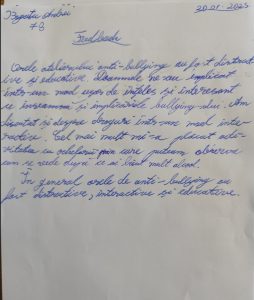 20.01.2025
7B
Feedback
Orele atelierului anti-bullying au fost distract
ive și educative. Doamnele ne-au implicat
într-un mod ușor de înțeles și interesant
ce înseamnă și implicațiile bullying-ului. Am
discutat și despre droguri într-un mod inter-
activ. Cel mai mult mi-a plăcut acti-
vitatea cu ochelarii prin care puteam observa
cum se vede după ce ai băut mult alcool.
În general orele de anti-bullying au
fost distractive, interactive și educative.